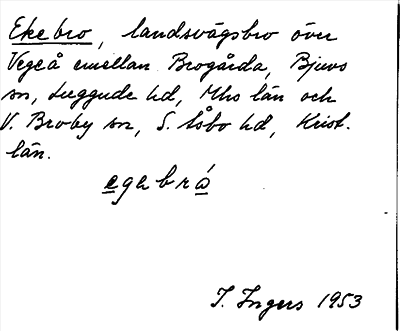 Ekebro, landsvägsbro över
Vegeå emellan Brogårda, Bjuvs
sn, Luggude hd, Mhs län och
V. Broby sn, S. Åsbo hd, Krist.
län.
egebrá
I. Ingers 1953